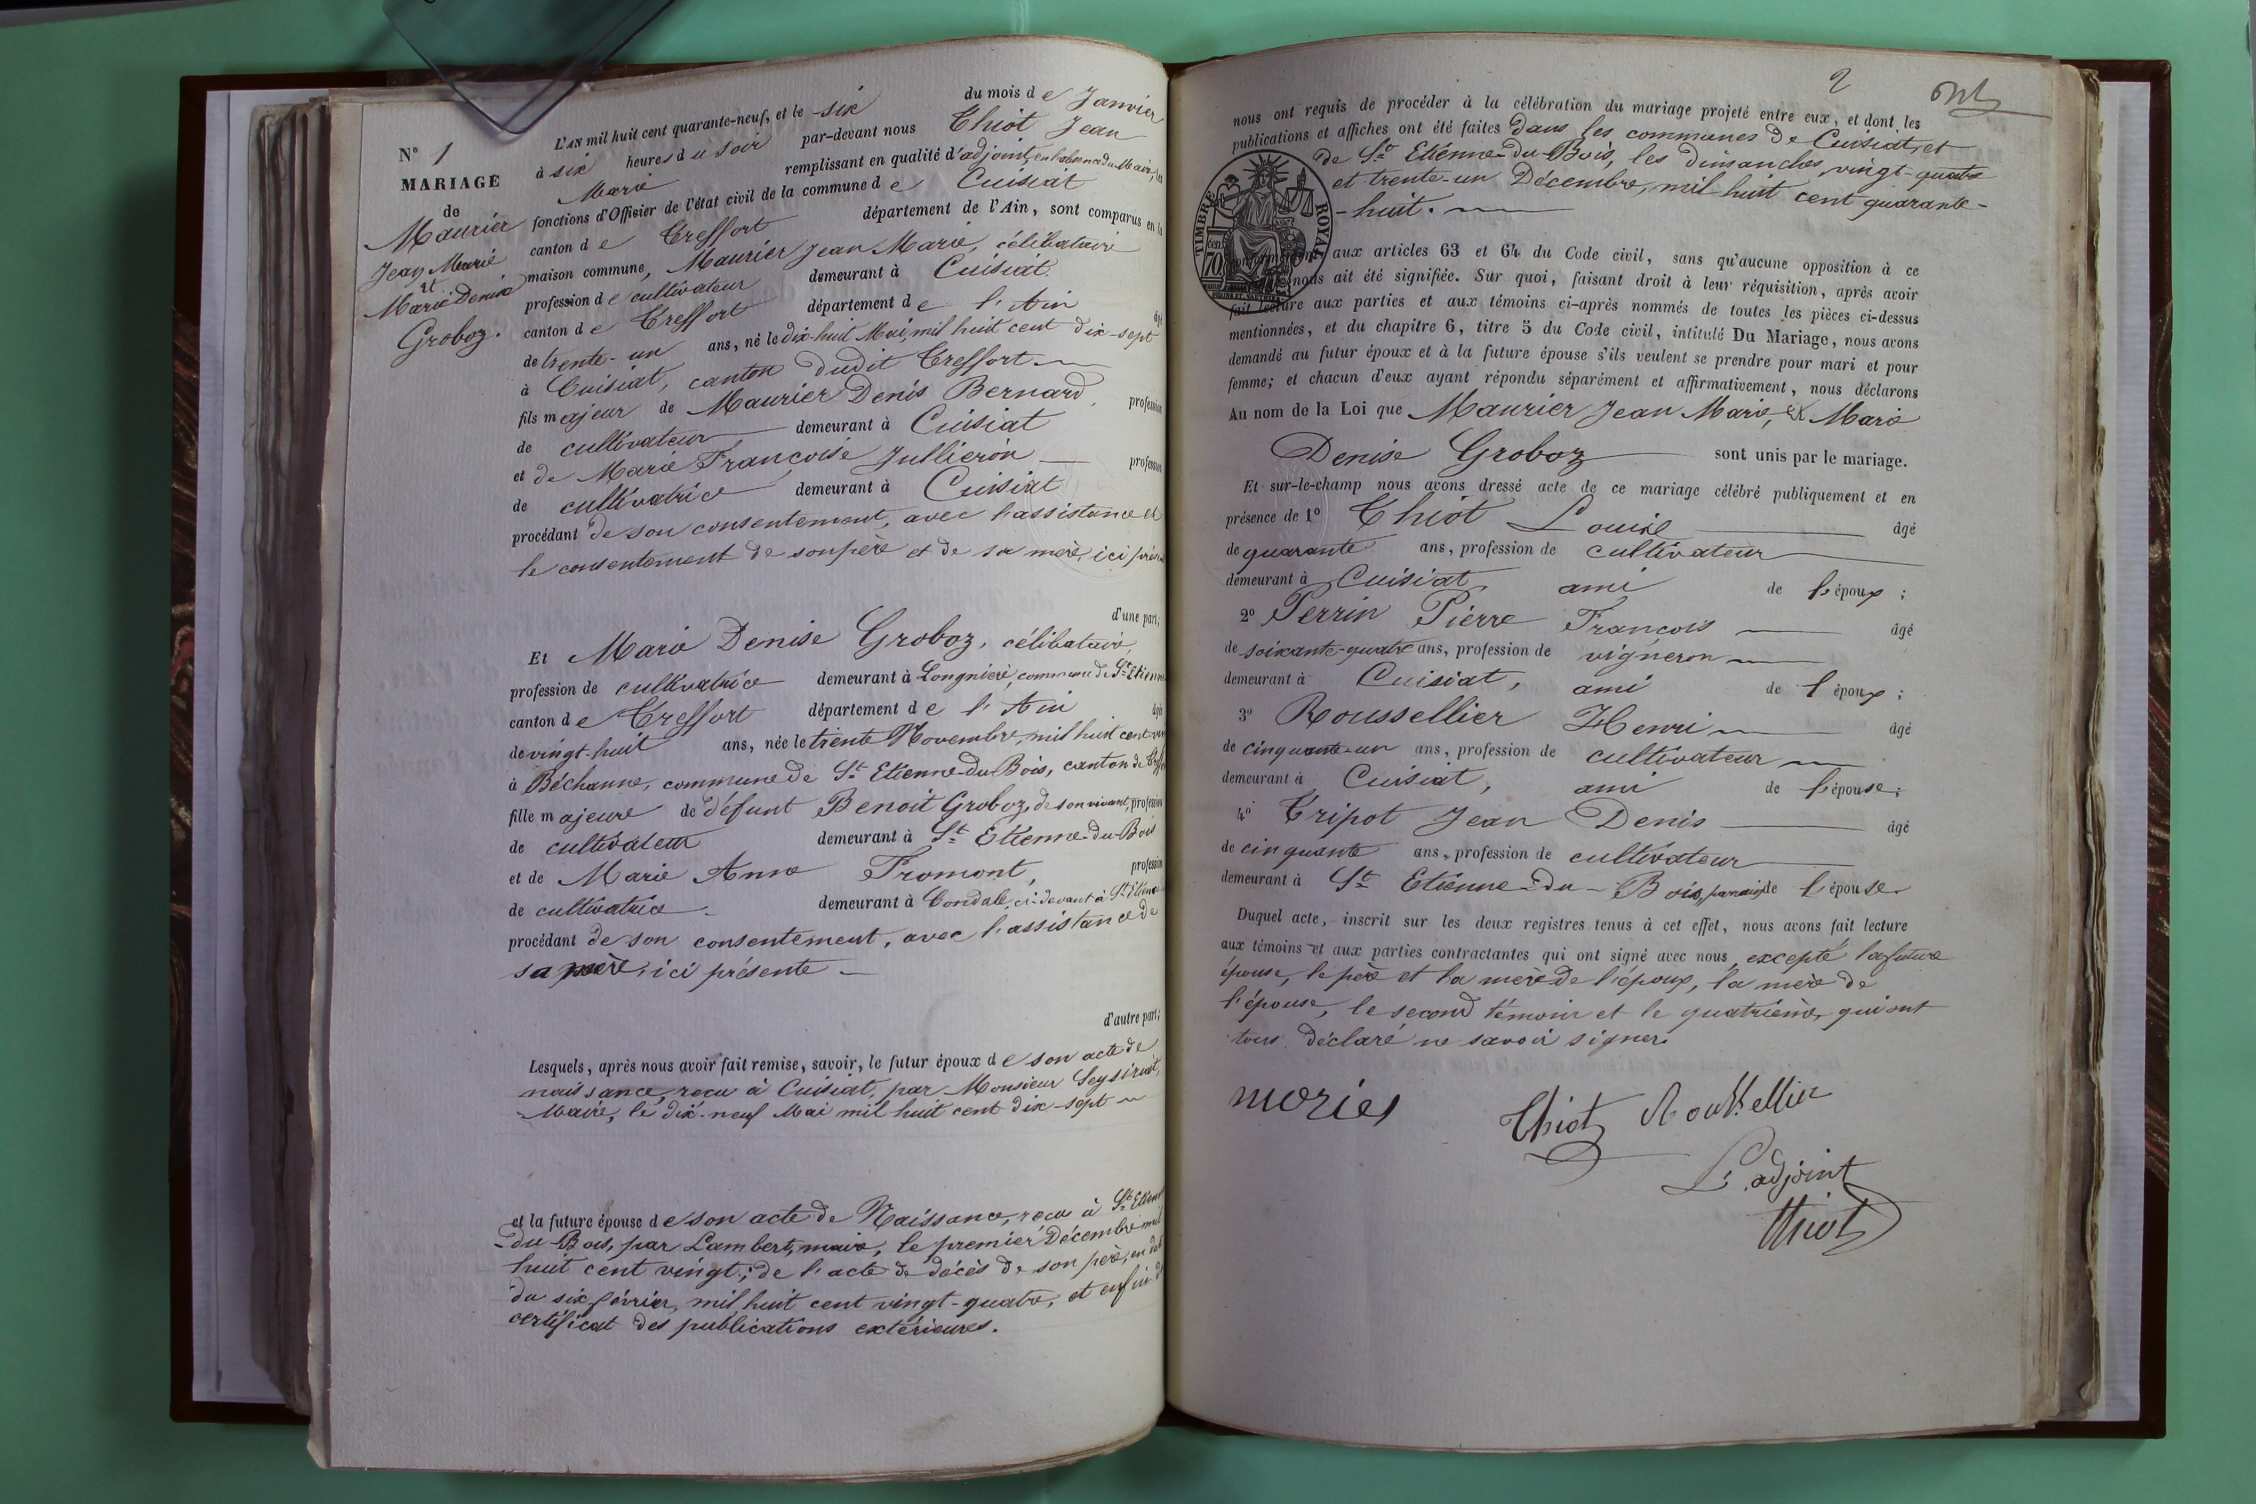 N° 1
MARIAGE
de
Maurier
Jean Marie
et
Marie Denise
Groboz.
L'AN mil huit cent quarante-neuf, et le six du mois de Janvier
à six heures du soir par-devant nous Thiot Jean
Marie remplissant en qualité d'adjoint, en l'absence du Maire, les
fonctions d'Officier de l'état civil de la commune de Cuisiat
canton de Treffort département de l'Ain, sont comparus en la
maison commune, Maurier Jean Marie, célibataire
profession de cultivateur demeurant à Cuisiat
canton de Treffort département de l'Ain âgé
de trente-un ans, né le dix-huit Mai, mil huit cent dix-sept
à Cuisiat, canton dudit Treffort
fils majeur de Maurier Denis Bernard, profession
de cultivateur demeurant à Cuisiat
et de Marie Françoise Jullieron profession
de cultivatrice demeurant à Cuisiat
procédant de son consentement, avec l'assistance et
le consentement de son père et de sa mère, ici
d'une part,
Et Marie Denise Groboz, célibataire,
profession de cultivatrice demeurant à Longnière, commune de St Etienne
canton de Treffort département de l'Ain âgée
de vingt-huit ans, née le trente Novembre, mil huit cent
à Béchanne, commune de St Etienne-du-Bois, canton de
fille majeure de défunt Benoit Groboz, de son vivant, profession
de cultivateur demeurant à St Etienne-du-Bois
et de Marie Anne Fromont, profession
de cultivatrice demeurant à Condale, ci-devant à St Etienne
procédant de son consentement, avec l'assistance de
sa mère, ici présente
d'autre part;
Lesquels, après nous avoir fait remise, savoir, le futur époux de son acte de
naissance, reçu à Cuisiat, par Monsieur
Maire, le dix-neuf Mai mil huit cent dix-sept
et la future épouse de son acte de Naissance, reçu à St Etienne
-du-Bois, par Lambert, maire, le premier Décembre mil
huit cent vingt; de l'acte de décès de son père, en date
du six février, mil huit cent vingt-quatre, et enfin du
certificat des publications extérieures.
2
nous ont requis de procéder à la célébration du mariage projeté entre eux, et dont les
publications et affiches ont été faites dans les communes de Cuisiat, et
de St Etienne-du-Bois, les dimanches, vingt-quatre
et trente-un Décembre, mil huit cent quarante-
-huit.
TIMBRE ROYAL
70
aux articles 63 et 64 du Code civil, sans qu'aucune opposition à ce
nous ait été signifiée. Sur quoi, faisant droit à leur réquisition, après avoir
fait lecture aux parties et aux témoins ci-après nommés de toutes les pièces ci-dessus
mentionnées, et du chapitre 6, titre 5 du Code civil, intitulé Du Mariage, nous avons
demandé au futur époux et à la future épouse s'ils veulent se prendre pour mari et pour
femme; et chacun d'eux ayant répondu séparément et affirmativement, nous déclarons
Au nom de la Loi que Maurier Jean Marie, & Marie
Denise Groboz sont unis par le mariage.
Et sur-le-champ nous avons dressé acte de ce mariage célébré publiquement et en
présence de 1° Thiot Louise âgé
de quarante ans, profession de cultivateur
demeurant à Cuisiat, ami de l'époux;
2° Perrin Pierre François âgé
de soixante-quatre ans, profession de vigneron
demeurant à Cuisiat, ami de l'époux;
3° Roussellier Henri âgé
de cinquante-un ans, profession de cultivateur
demeurant à Cuisiat, ami de l'épouse;
4° Tripot Jean Denis âgé
de cinquante ans, profession de cultivateur
demeurant à St Etienne-du-Bois, de l'épouse.
Duquel acte, inscrit sur les deux registres tenus à cet effet, nous avons fait lecture
aux témoins et aux parties contractantes qui ont signé avec nous, excepté la future
épouse, le père et la mère de l'époux, la mère de
l'épouse, le second témoin et le quatrième, qui ont
tous déclaré ne savoir signer.
mories Thiot Roussellier
L'adjoint
Thiot